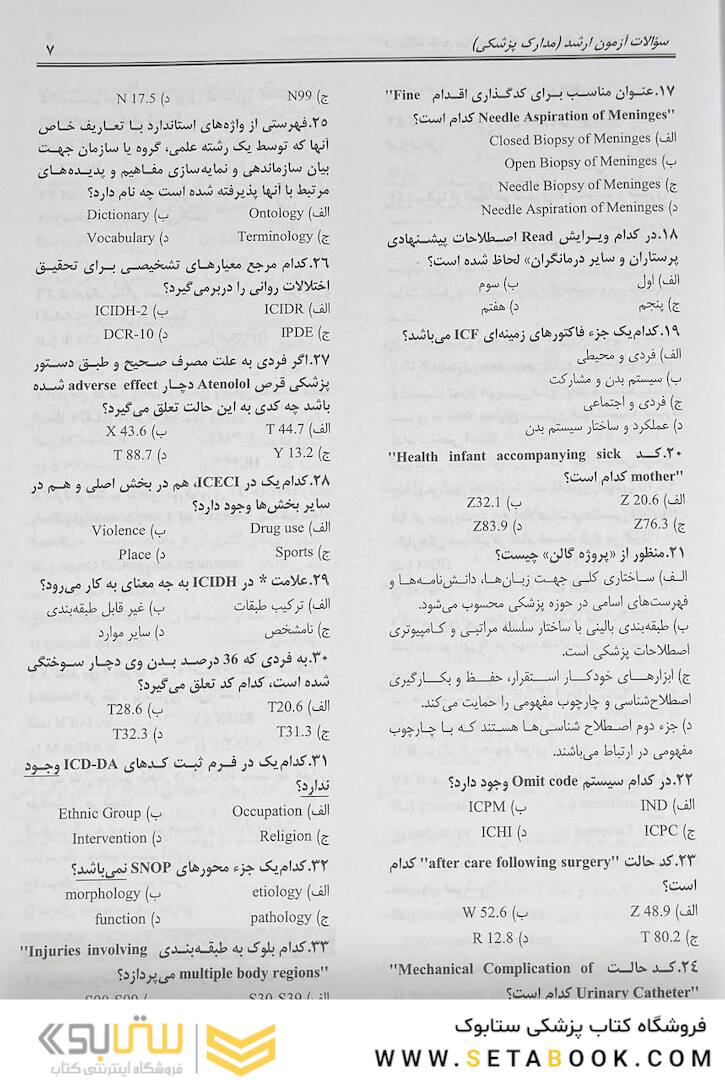 سؤالات آزمون ارشد (مدارک پزشکی)
۷
۱۷.عنوان مناسب برای کدگذاری اقدام "Fine
Needle Aspiration of Meninges" کدام است؟
الف) Closed Biopsy of Meninges
ب) Open Biopsy of Meninges
ج) Needle Biopsy of Meninges
د) Needle Aspiration of Meninges
۱۸.در کدام ویرایش Read اصطلاحات پیشنهادی
پرستاران و سایر درمانگران» لحاظ شده است؟
الف) اول ب) سوم
ج) پنجم د) هفتم
۱۹.کدام‌یک جزء فاکتورهای زمینه‌ای ICF می‌باشد؟
الف) فردی و محیطی
ب) سیستم بدن و مشارکت
ج) فردی و اجتماعی
د) عملکرد و ساختار سیستم بدن
۲۰.کد "Health infant accompanying sick
mother" کدام است؟
الف) Z 20.6 ب) Z32.1
ج) Z76.3 د) Z83.9
۲۱.منظور از «پروژه گالن» چیست؟
الف) ساختاری کلی جهت زبان‌ها، دانش‌نامه‌ها و
فهرست‌های اسامی در حوزه پزشکی محسوب می‌شود.
ب) طبقه‌بندی بالینی با ساختار سلسله مراتبی و کامپیوتری
اصطلاحات پزشکی است.
ج) ابزارهای خودکار استقرار، حفظ و بکارگیری
اصطلاح‌شناسی و چارچوب مفهومی را حمایت می‌کند.
د) جزء دوم اصطلاح شناسی‌ها هستند که با چارچوب
مفهومی در ارتباط می‌باشند.
۲۲.در کدام سیستم Omit code وجود دارد؟
الف) IND ب) ICPM
ج) ICPC د) ICHI
۲۳.کد حالت "after care following surgery" کدام
است؟
الف) Z 48.9 ب) W 52.6
ج) T 80.2 د) R 12.8
۲٤.کد حالت "Mechanical Complication of
Urinary Catheter" کدام است؟
ج) N99 د) N 17.5
۲۵.فهرستی از واژه‌های استاندارد با تعاریف خاص
آنها که توسط یک رشته علمی، گروه یا سازمان جهت
بیان سازماندهی و نمایه‌سازی مفاهیم و پدیده‌های
مرتبط با آنها پذیرفته شده است چه نام دارد؟
الف) Ontology ب) Dictionary
ج) Terminology د) Vocabulary
۲۶.کدام مرجع معیارهای تشخیصی برای تحقیق
اختلالات روانی را دربرمی‌گیرد؟
الف) ICIDR ب) ICIDH-2
ج) IPDE د) DCR-10
۲۷.اگر فردی به علت مصرف صحیح و طبق دستور
پزشکی قرص Atenolol دچار adverse effect شده
باشد چه کدی به این حالت تعلق می‌گیرد؟
الف) T 44.7 ب) X 43.6
ج) Y 13.2 د) T 88.7
۲۸.کدام‌یک در ICECI، هم در بخش اصلی و هم در
سایر بخش‌ها وجود دارد؟
الف) Drug use ب) Violence
ج) Sports د) Place
۲۹.علامت * در ICIDH به جه معنای به کار می‌رود؟
الف) ترکیب طبقات ب) غیر قابل طبقه‌بندی
ج) نامشخص د) سایر موارد
۳۰.به فردی که 36 درصد بدن وی دچار سوختگی
شده است، کدام کد تعلق می‌گیرد؟
الف) T20.6 ب) T28.6
ج) T31.3 د) T32.3
۳۱.کدام‌یک در فرم ثبت کدهای ICD-DA وجود
ندارد؟
الف) Occupation ب) Ethnic Group
ج) Religion د) Intervention
۳۲.کدام‌یک جزء محورهای SNOP نمی‌باشد؟
الف) etiology ب) morphology
ج) pathology د) function
۳۳.کدام بلوک به طبقه‌بندی "Injuries involving
multiple body regions" می‌پردازد؟
فروشگاه کتاب پزشکی ستابوک
WWW.SETABOOK.COM
ستابوک
فروشگاه اینترنتی کتاب